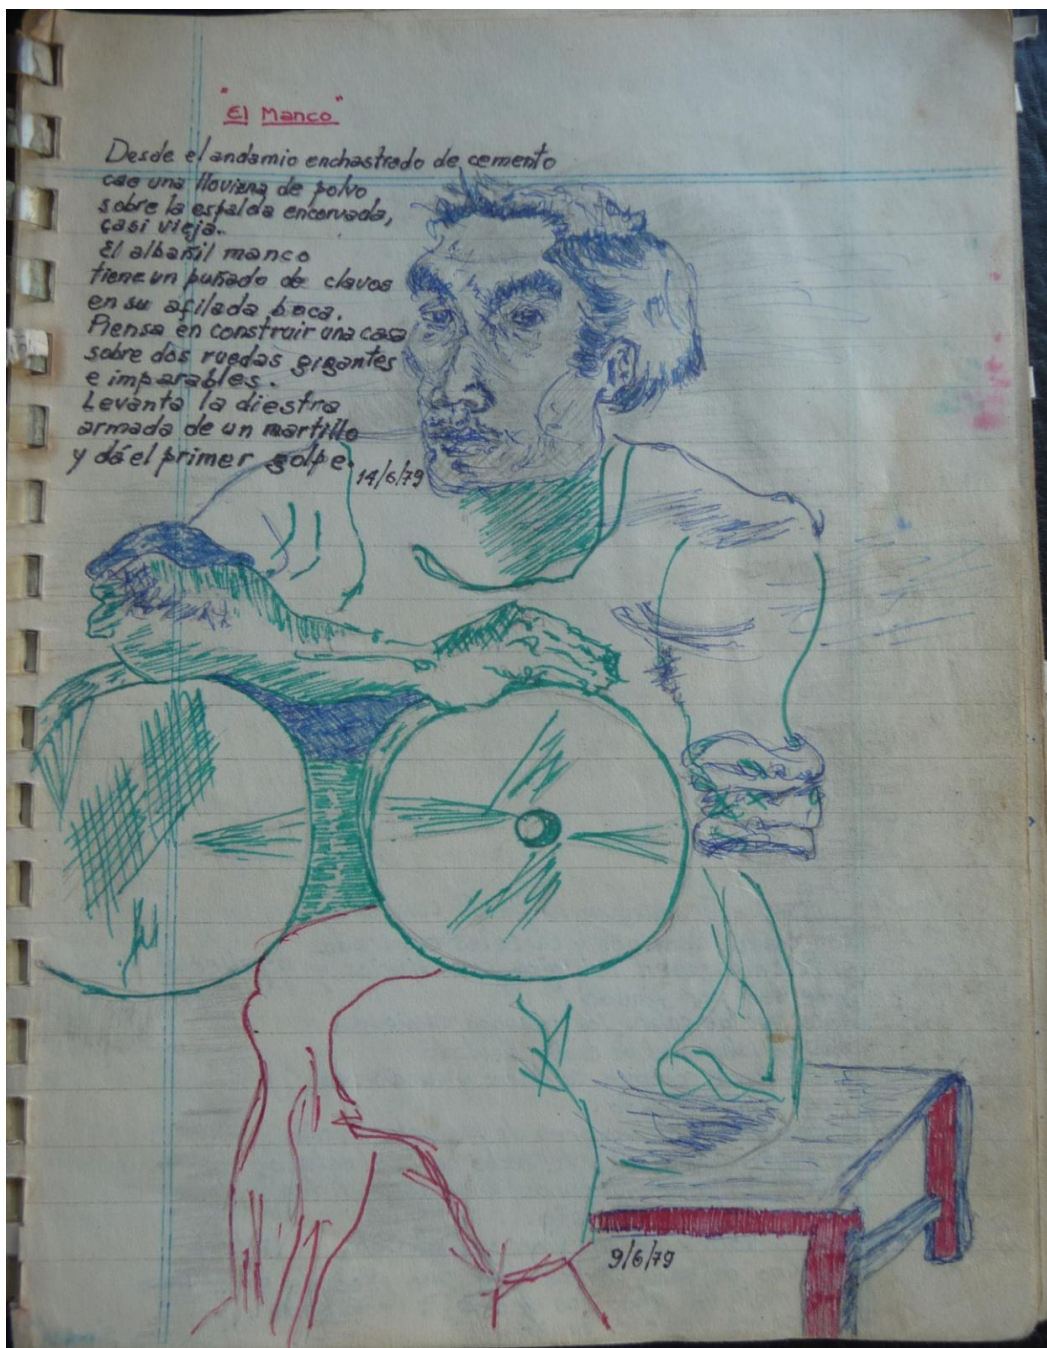 "El Manco"
Desde el andamio enchastrado de cemento
cae una llovizna de polvo
sobre la espalda encorvada,
casi vieja.
El albañil manco
tiene un puñado de clavos
en su afilada boca.
Piensa en construir una casa
sobre dos ruedas gigantes
e imparables.
Levanta la diestra
armada de un martillo
y dá el primer golpe.
14/6/79
9/6/79